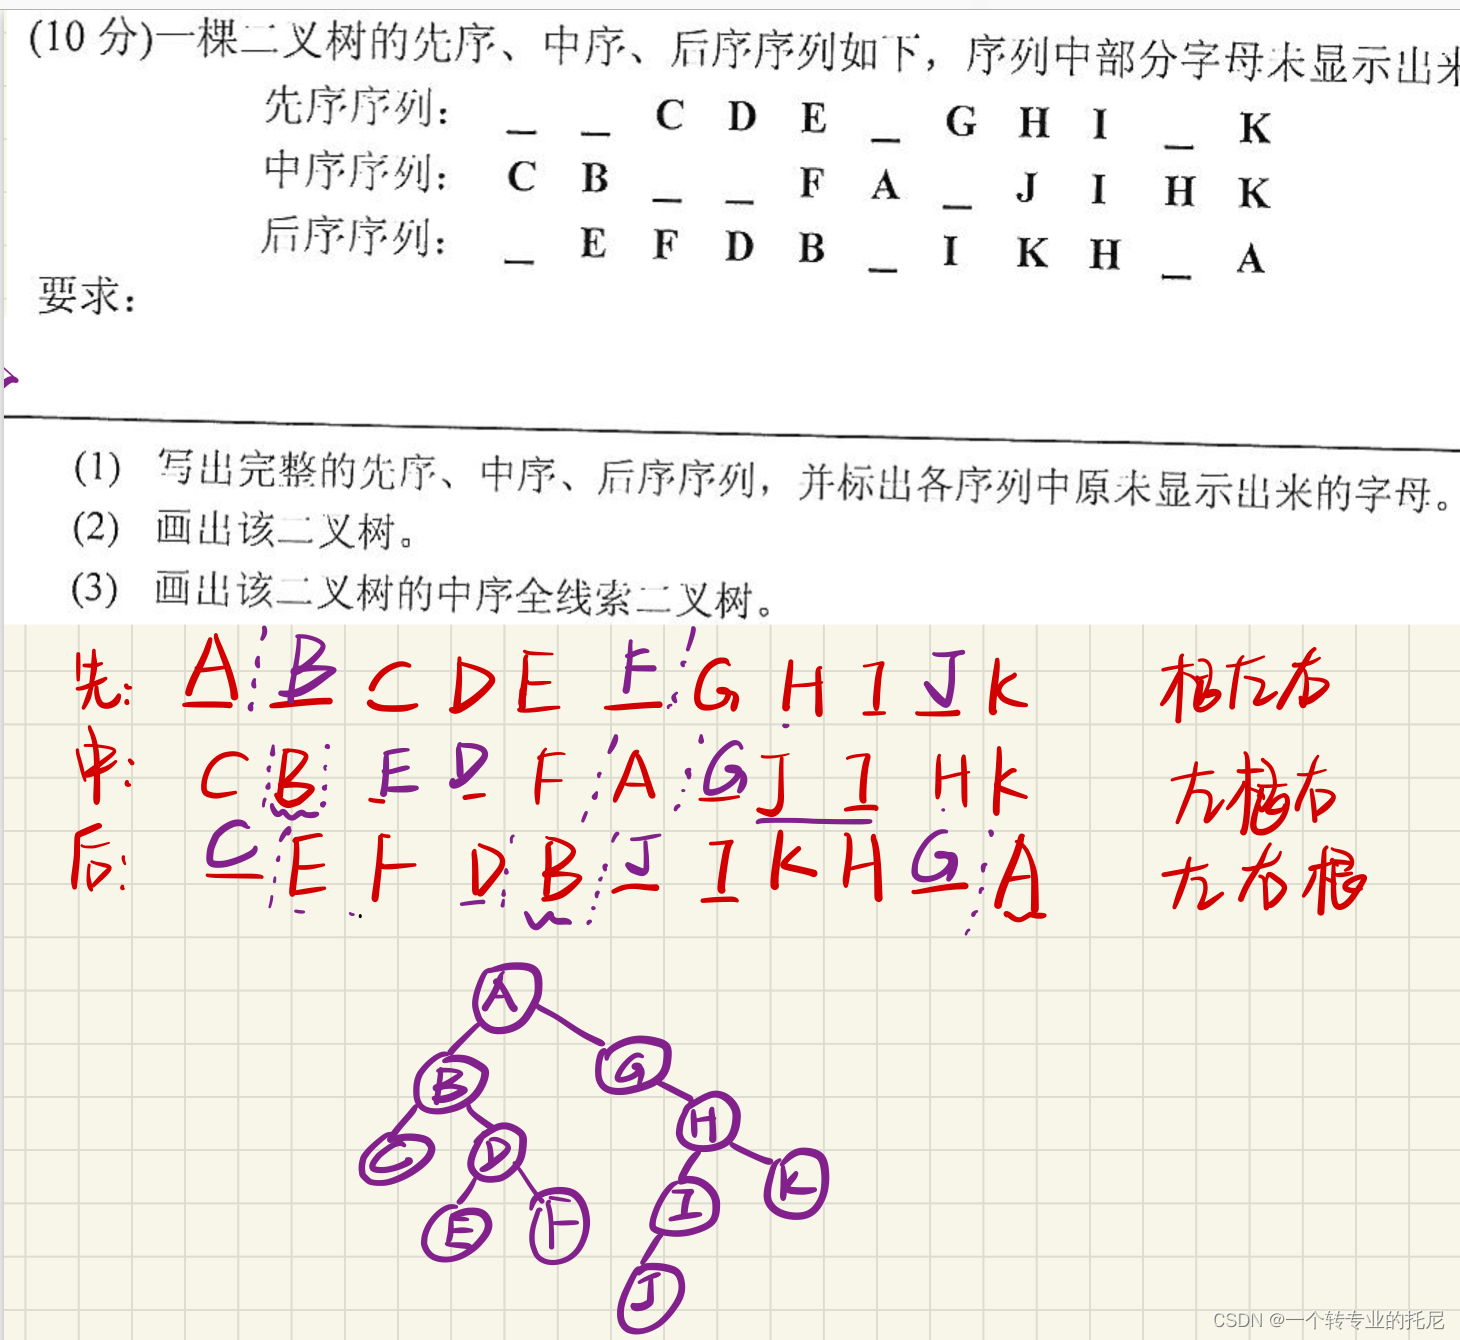 (10 分)一棵二叉树的先序、中序、后序序列如下，序列中部分字母未显示出来
先序序列： _ _ C D E _ G H I _ K
中序序列： C B _ _ F A _ J I H K
后序序列： _ E F D B _ I K H _ A
要求：
(1) 写出完整的先序、中序、后序序列，并标出各序列中原未显示出来的字母。
(2) 画出该二叉树。
(3) 画出该二叉树的中序全线索二叉树。
先: A B C D E F G H I J K 根左右
中: C B E D F A G J I H K 左根右
后: C E F D B J I K H G A 左右根
A
B G
C D H
E F I K
J
CSDN @一个转专业的托尼